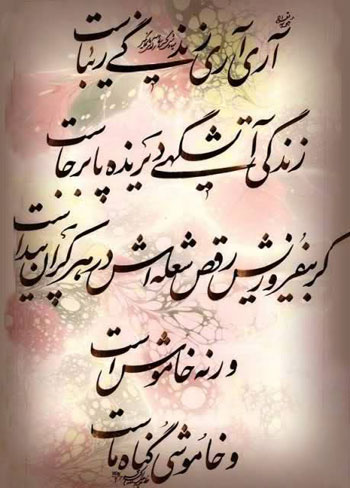 آری آری زندگی زیباست
زندگی آتشگهی دیرنده پابرجاست
گر بیفروزیش رقص شعله‌اش در هر کران پیداست
ورنه خاموش است
و خاموشی گناه ماست